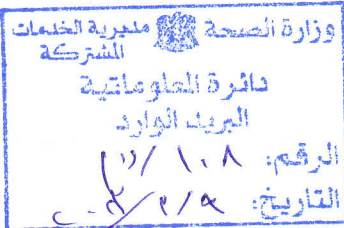 وزارة الصحة مديرية الخدمات
المشتركة
دائرة المعلوماتية
البريد الوارد
الرقم: ١٠٨
التاريخ: